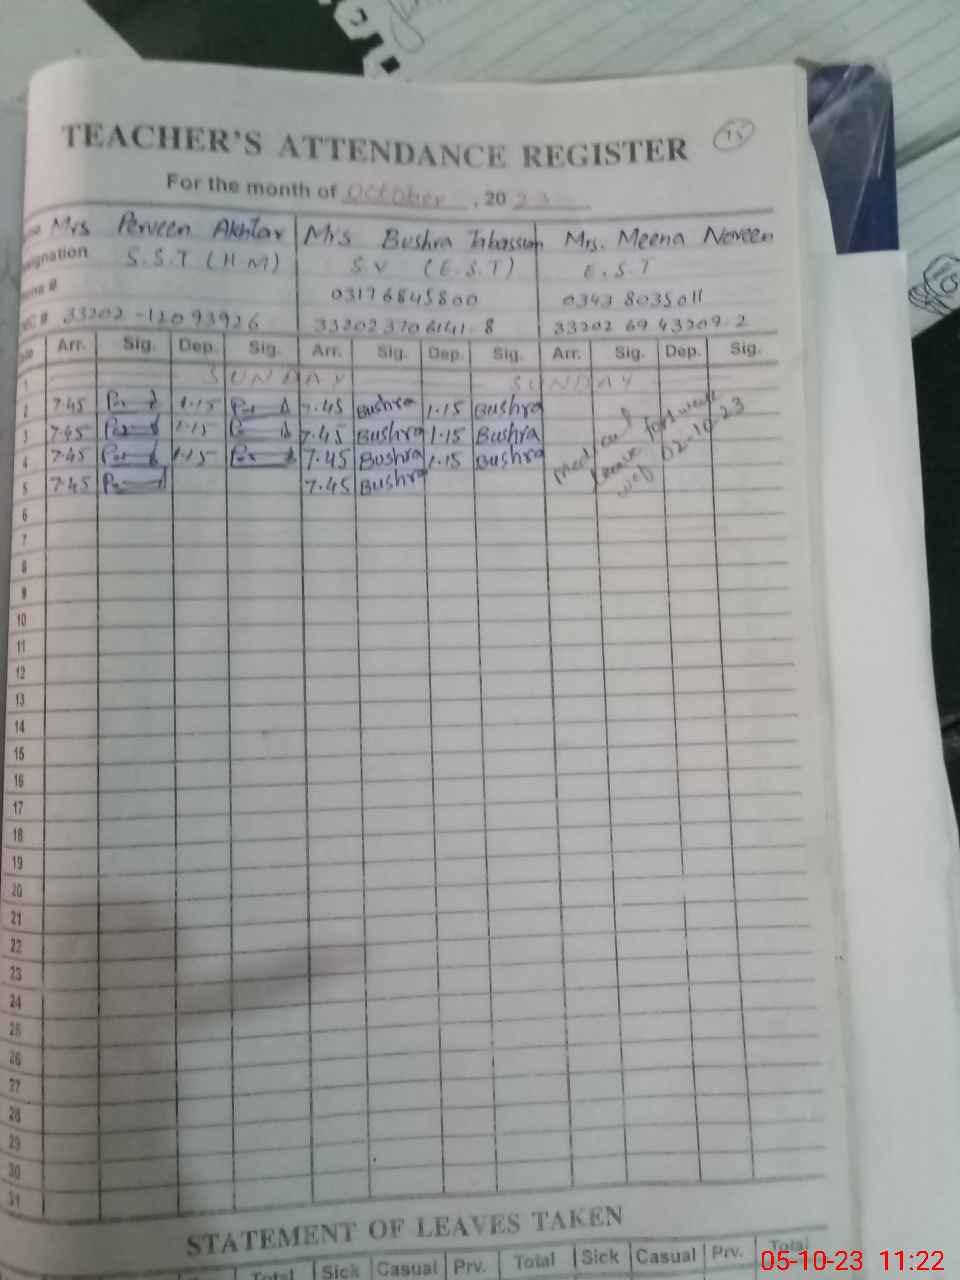 TEACHER'S ATTENDANCE REGISTER
15
For the month of October, 2023
Mrs Perveen Akhtar Mrs Bushra Tabassum Mrs. Meena Noreen
S.S.T (H M) S.V (E.S.T) E.S.T
03176845800 0343 8035011
33202-12093926 332023706141-8 33202 69 43209-2
Arr. Sig. Dep. Sig. Arr. Sig. Dep. Sig. Arr. Sig. Dep. Sig.
1 SUNDAY SUNDAY
2 7.45 1.15 7.45 Bushra 1.15 Bushra
3 7.45 1.15 7.45 Bushra 1.15 Bushra
4 7.45 1.15 7.45 Bushra 1.15 Bushra
5 7.45 7.45 Bushra
Medical
Leave for 1 week
wef 02-10-23
6
7
8
9
10
11
12
13
14
15
16
17
18
19
20
21
22
23
24
25
26
27
28
29
30
31
STATEMENT OF LEAVES TAKEN
Total Sick Casual Prv. Total Sick Casual Prv. Total
05-10-23 11:22